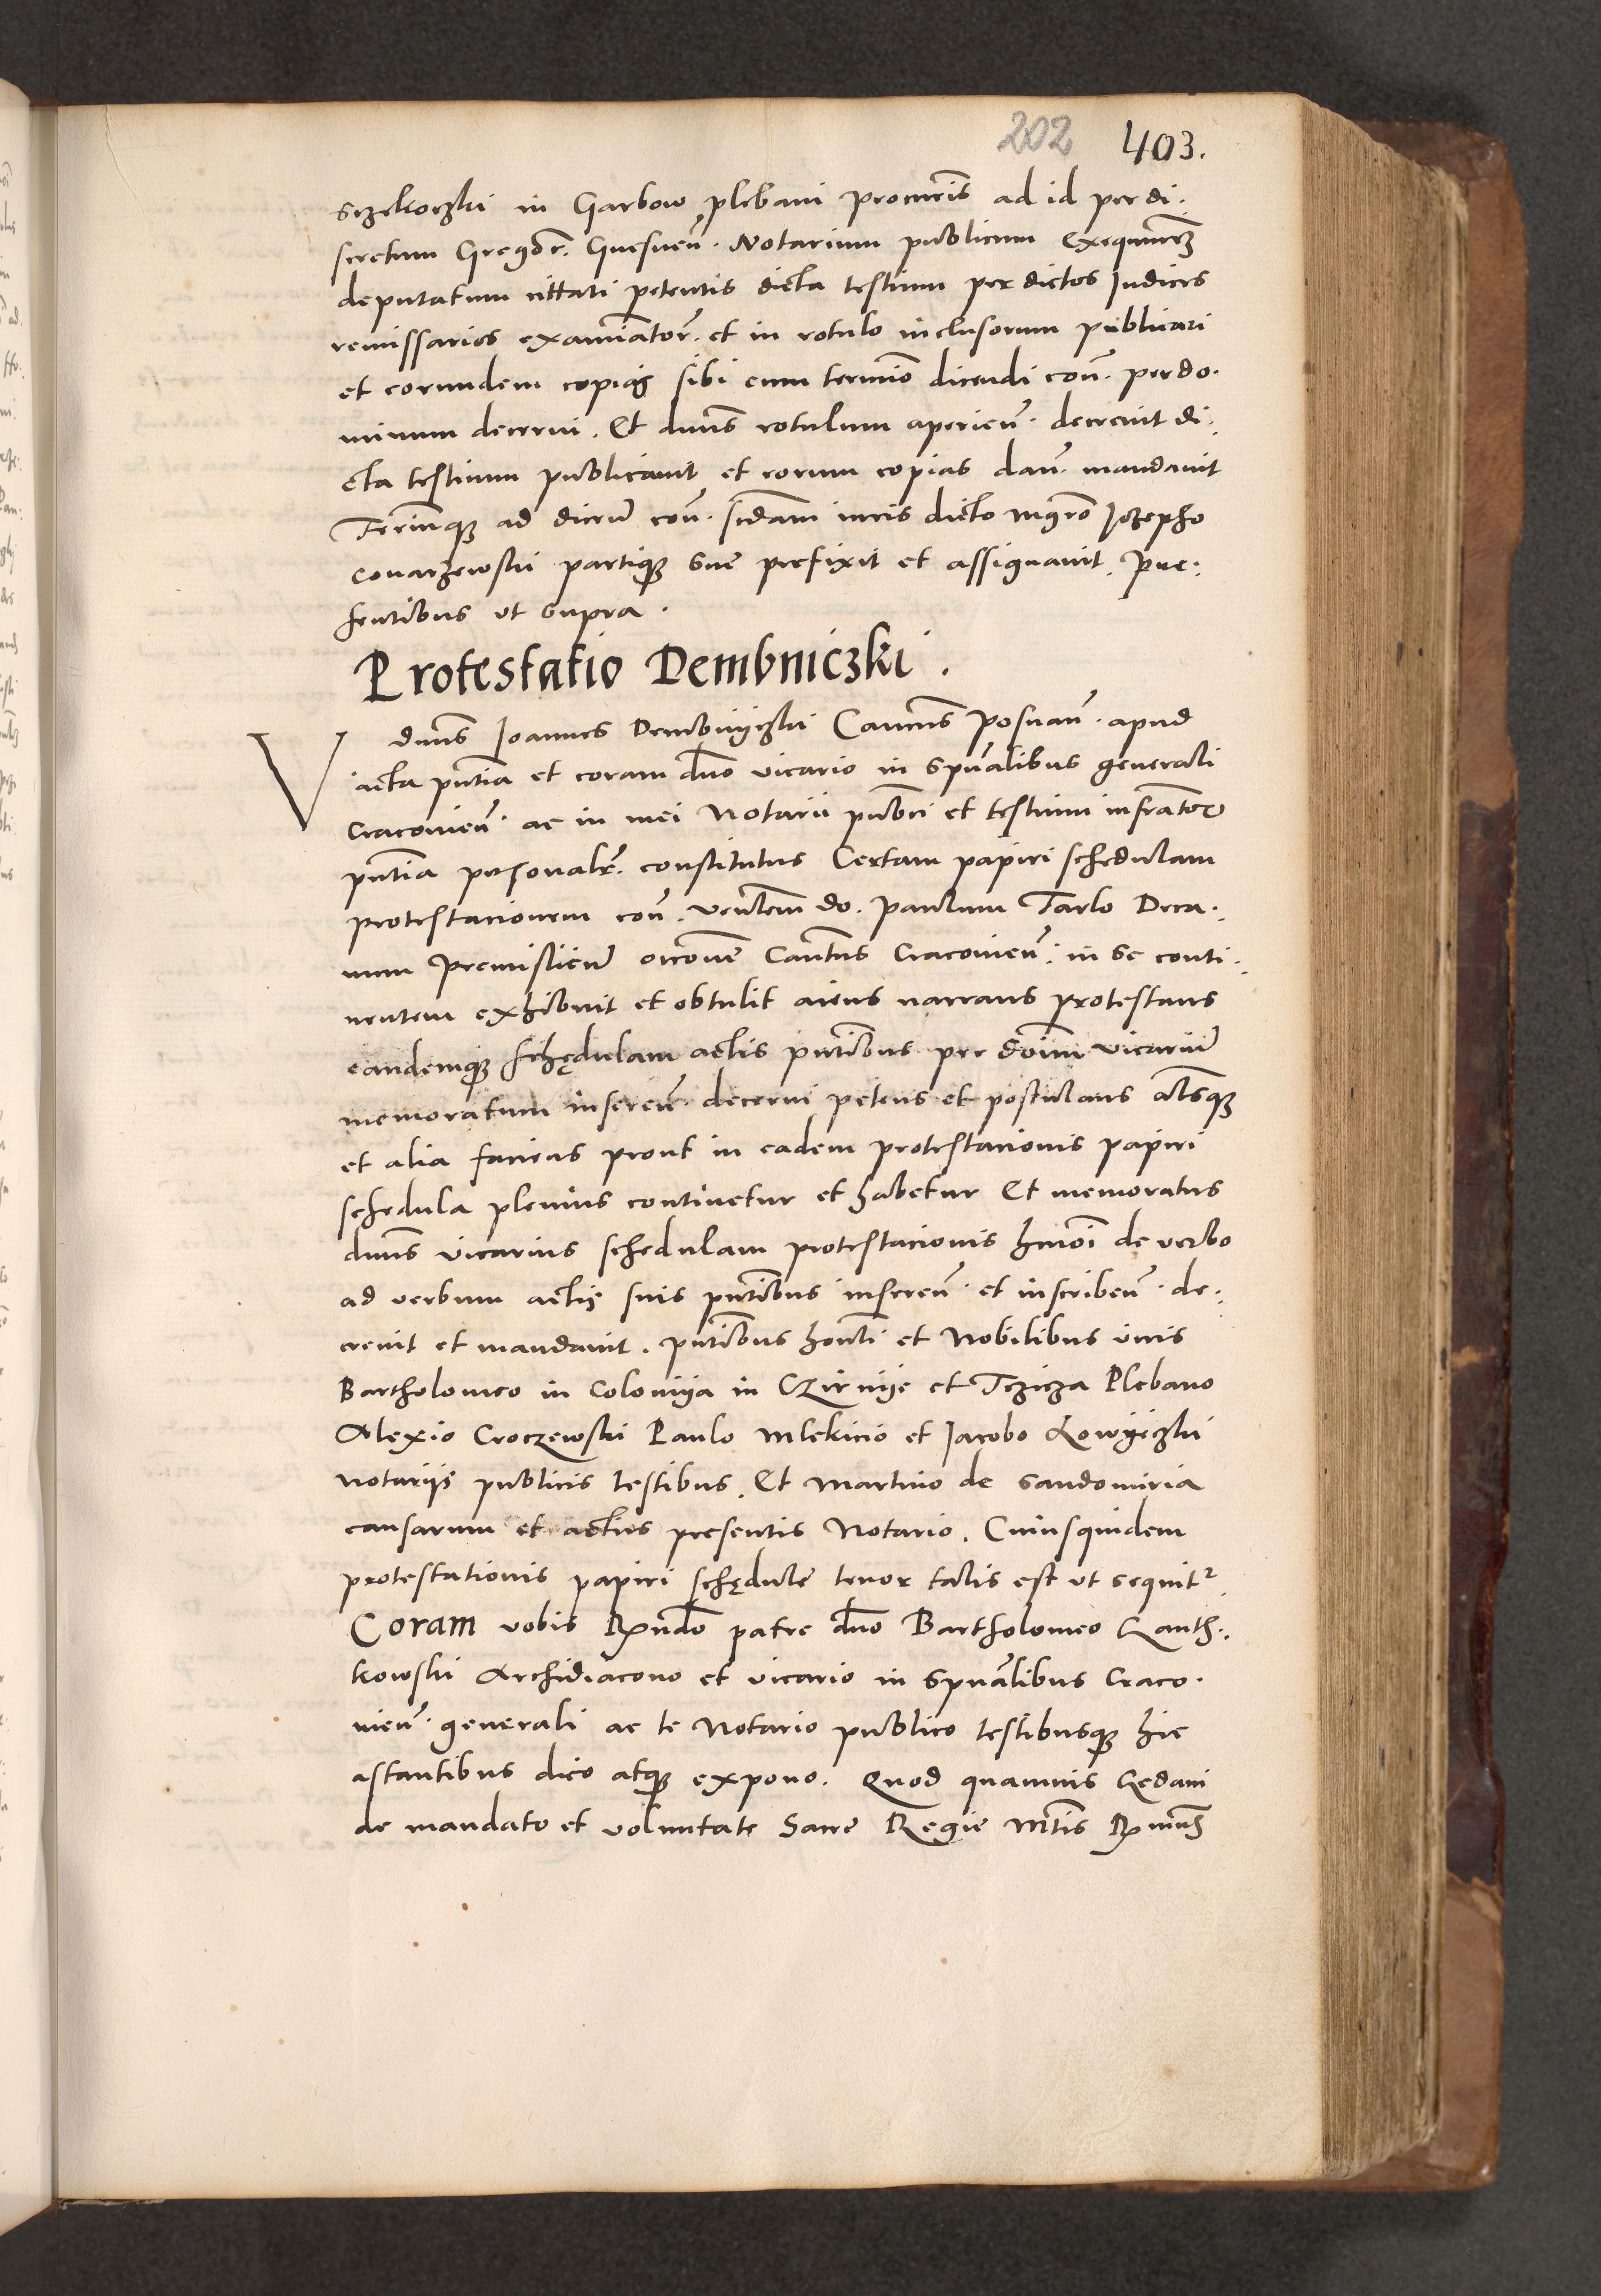 202 403.
Szekoczki in Garbow plebani procuris ad id per di.
scretum Gregor. Gnesnen. Notarium publicum
deputatum cittati petentis dicta testium per dictos Judices
remissarios examinator. et in rotulo inclusorum publicari
et eorundem copias sibi cum termino dicendi con. per do.
minum decerni. Et dnus rotulum aperien. decrevit di:
cta testium publicavit et eorum copias dan. mandavit
ad con. iuris dicto mgro Jozepho
partique sue prefixit et assignavit. Pre:
sentibus ut supra.
Protestatio Dembniczki.
V dnus Joannes Dembnyczki Cancus Posnan. apud
acta pntia et coram dno vicario in spualibus generali
Cracovien. ac in mei Notarii publici et testium infrator
pntia personalr. constitutus Certam papiri schedulam
protestacionem con. do. Paulum Tarlo Deca.
num Premislien Cracovien. in se conti.
nentem exhibuit et obtulit aiens narrans protestans
eandemque schędulam actis pntibus per doim vicariu
memoratum inseren. decerni petens et postulans aliasque
et alia faciens prout in eadem protestacionis papiri
schedula plenius continetur et habetur Et memoratus
dnus vicarius schedulam protestacionis hmoi de verbo
ad verbum actis suis pntibus inseren. et inscriben. de:
crevit et mandavit. pntibus honli et Nobilibus viris
Bartholomeo in Coloniya in Czirnye et Tczicza Plebano
Alexio Croczewski Paulo Mlekicio et Jacobo Lowyczki
notariis publicis testibus. Et Martino de Sandomiria
causarum et actus presentis Notario. Cuiusquidem
protestationis papiri schędule tenor talis est ut sequitr
Coram vobis Rndo patre dno Bartholomeo Ganth:
kowski Archidiacono et vicario in spualibus Craco.
vien. generali ac te Notario publico testibusque hic
astantibus dico atque expono. Quod quamvis Gedani
de mandato et voluntate Sacre Regie Mtis